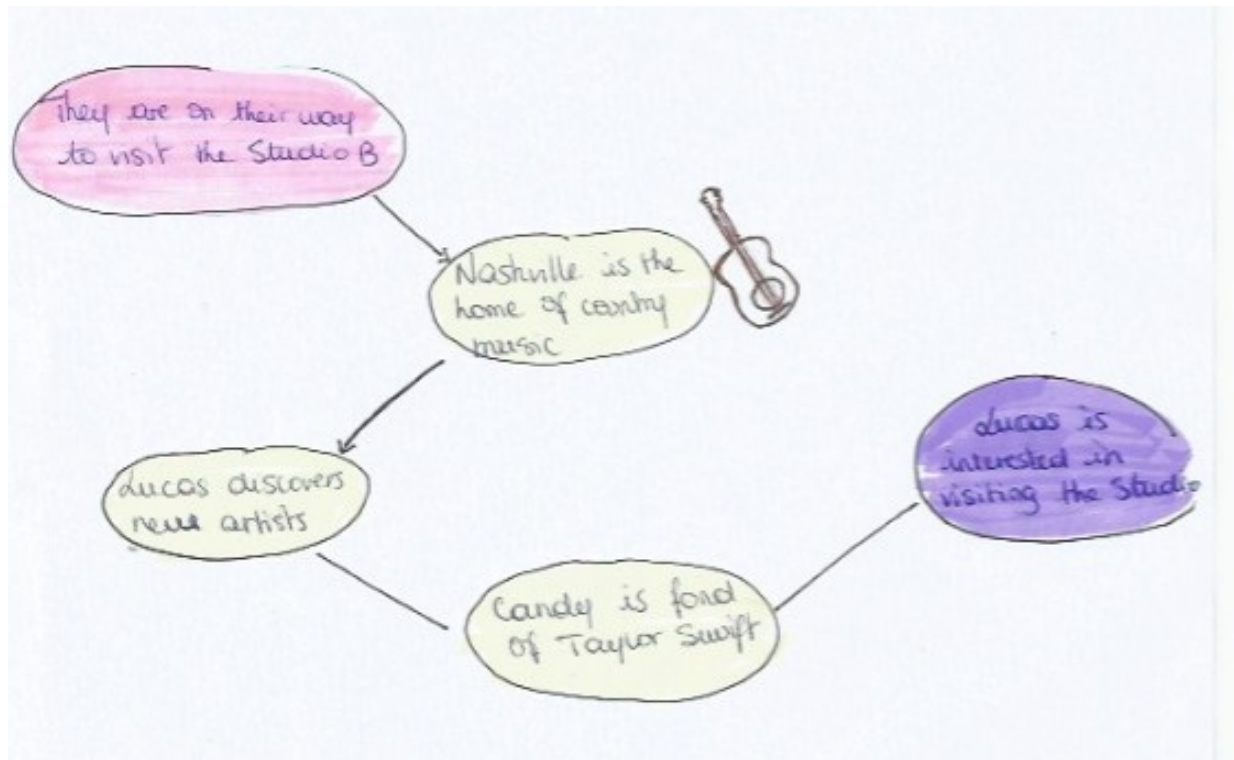 They are on their way
to visit the Studio B
Nashville is the
home of country
music
Lucas discovers
new artists
Candy is fond
of Taylor Swift
Lucas is
interested in
visiting the Studio